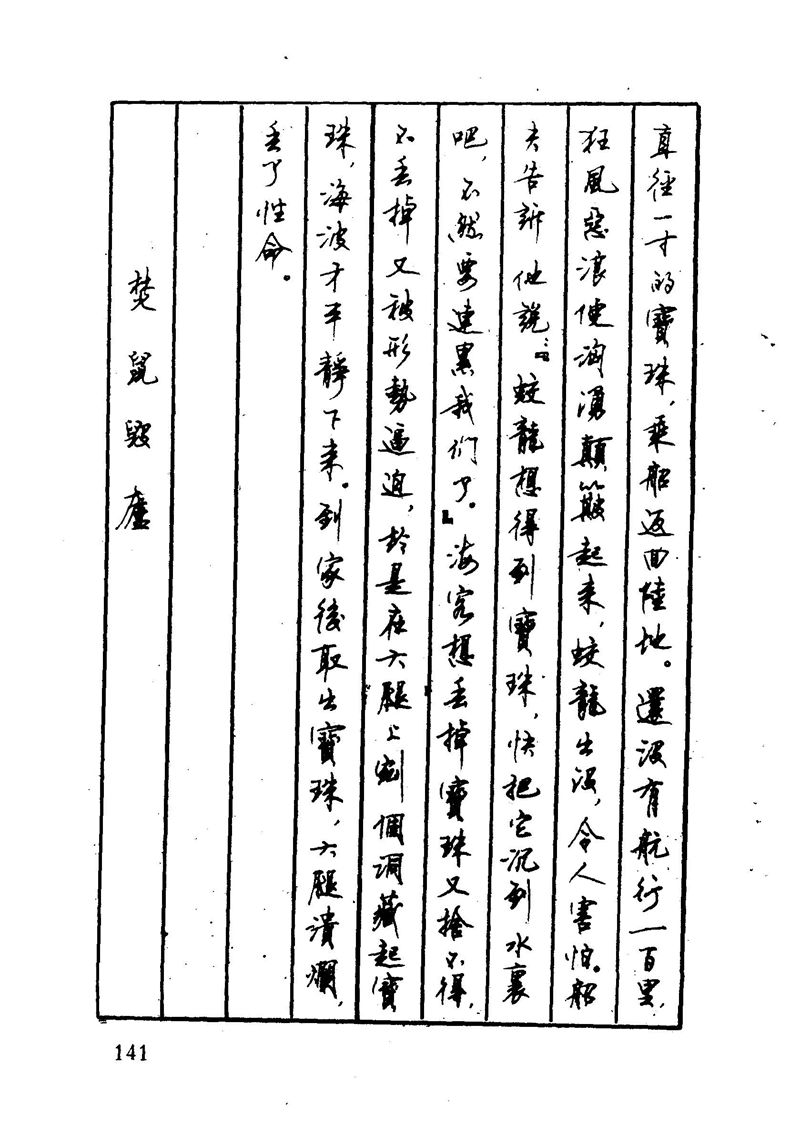 直徑一寸的寶珠，乘船返回陸地。還没有航行一百里，
狂風惡浪便洶湧顛簸起来，蛟龍出没，令人害怕。船
夫告訴他説：『蛟龍想得到寶珠，快把它沉到水裏
吧，不然要連累我們了。』海客想丢掉寶珠又捨不得，
不丢掉又被形勢逼迫，於是在大腿上剜個洞藏起寶
珠，海波才平靜下来。到家後取出寶珠，大腿潰爛，
丢了性命。
焚鼠毁廬
141